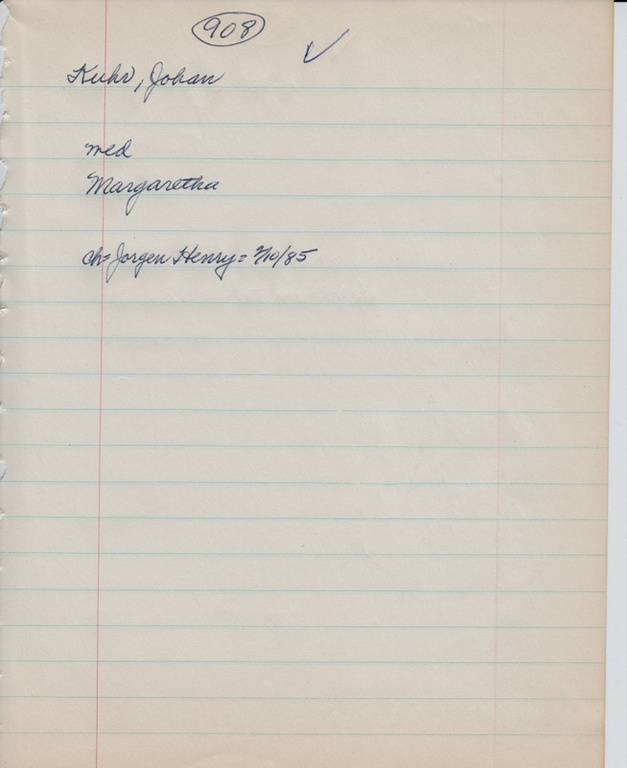 908
Kuhr, Johan
med
Margaretha
ch= Jorgen Henry=